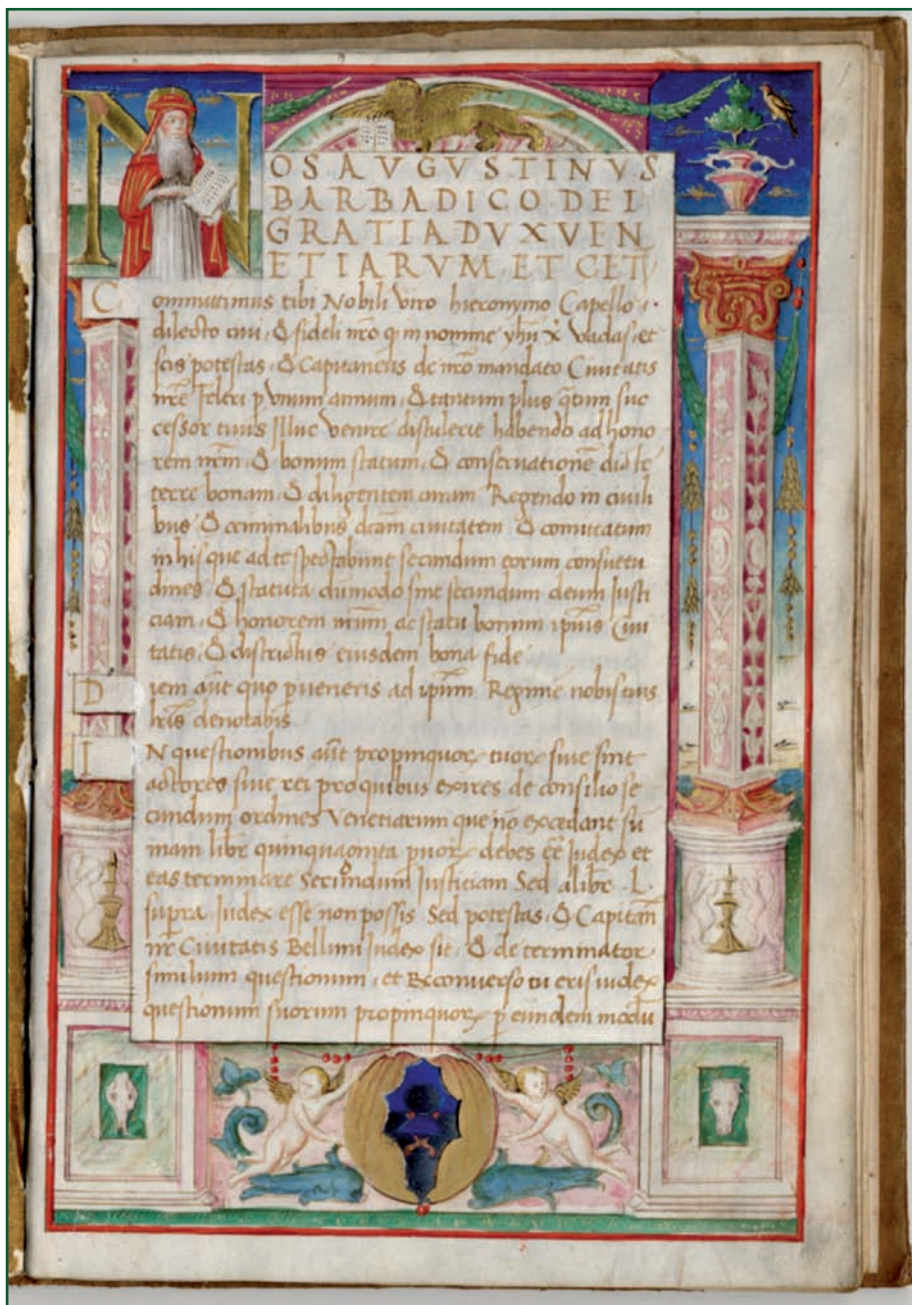 NOS AVGVSTINVS
BARBADICO DEI
GRATIA DVX VEN
ETIARVM ET CET
Committimus tibi Nobili Viro hieronymo Capello
dilecto civi, & fideli nro q in nomine yhu x Vadas, et
scis potestas, & Capitaneus de nro mandato Civitatis
nre Feltri p Vnum annum, & tantum plus qtum suc
cessor tuus Illuc Venire distulerit habendo ad hono
rem nrm, & bonum statum, & conservatione dicte
terre bonam, & diligentem curam Regendo in civili
bus, & criminalibus dcam civitatem, & comitatum
in his que ad te spectabunt secundum eorum consuetu
dines, & statuta dumodo sint secundum deum Justi
ciam, & honorem nrum ac statu bonum ipius Civi
tatis, & districtus eiusdem bona fide
Diem aut quo pveneris ad ipum Regime nobis tuis
lris denotabis
IN questionibus aut propinquor tuor sive sint
actores sive rei pro quibus exires de consilio se
cundum ordines Venetiarum que no excedant su
mam libr quinquaginta pvor debes ee Judex et
eas terminare secundum Justiciam Sed a libr L
supra Judex esse non possis Sed potestas, & Capitan
nr Civitatis Belluni Judex sit, & determinator
similium questionum, et Econverso tu eris iudex
questionum suorum propinquor p eundem modu